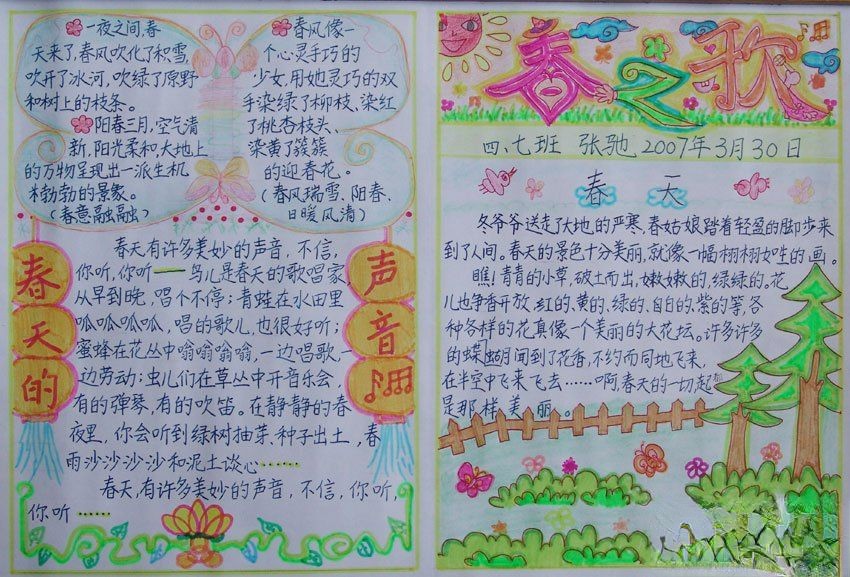 一夜之间,春
天来了,春风吹化了积雪,
吹开了冰河,吹绿了原野
和树上的枝条。
阳春三月,空气清
新,阳光柔和,大地上
的万物呈现出一派生机
勃勃的景象。
(春意融融)
春风像一
个心灵手巧的
少女,用她灵巧的双
手染绿了柳枝、染红
了桃杏枝头、
染黄了簇簇
的迎春花。
(春风瑞雪、阳春、
日暖风清)
春天的
声音
春天有许多美妙的声音,不信,
你听,你听——鸟儿是春天的歌唱家,
从早到晚,唱个不停;青蛙在水田里
呱呱呱呱,唱的歌儿,也很好听;
蜜蜂在花丛中嗡嗡嗡嗡,一边唱歌,一
边劳动;虫儿们在草丛中开音乐会,
有的弹琴,有的吹笛。在静静的春
夜里,你会听到绿树抽芽,种子出土,春
雨沙沙沙沙和泥土谈心……
春天,有许多美妙的声音,不信,你听,
你听……
春之歌
四.七班 张驰 2007年3月30日
春天
冬爷爷送走了大地的严寒,春姑娘踏着轻盈的脚步来
到了人间。春天的景色十分美丽,就像一幅栩栩如生的画。
瞧!青青的小草,破土而出,嫩嫩的,绿绿的。花
儿也争香开放,红的、黄的、绿的、白的、紫的等,各
种各样的花真像一个美丽的大花坛。许多许多
的 闻到了花香,不约而同地飞来,
在半空中飞来飞去……啊,春天的一切起
是那样美丽。